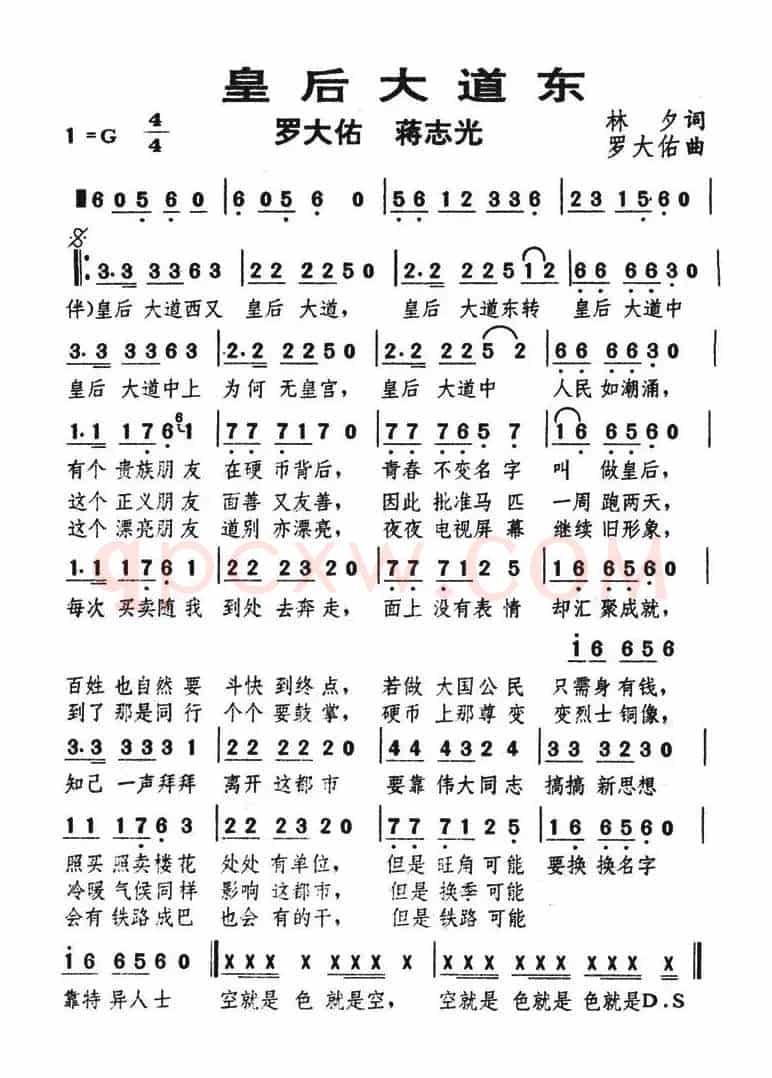 皇后大道东
1=G 4/4 罗大佑 蒋志光 林夕词
罗大佑曲
6 0 5 6 0 | 6 0 5 6 0 | 5 6 1 2 3 3 6 | 2 3 1 5· 6 0 |
3·3 3 3 6 3 | 2 2 2 2 5 0 | 2·2 2 2 5 1 2 | 6 6 6 6 3 0 |
伴)皇后 大道西又 皇后 大道, 皇后 大道东转 皇后 大道中
3·3 3 3 6 3 | 2·2 2 2 5 0 | 2·2 2 2 5 2 | 6 6 6 6 3 0 |
皇后 大道中上 为何 无皇宫, 皇后 大道中 人民 如潮涌,
1·1 1 7 6 6 1 | 7 7 7 1 7 0 | 7 7 7 6 5 7 | 1 6 6 5 6 0 |
有个 贵族朋友 在硬 币背后, 青春 不变名字 叫 做皇后,
这个 正义朋友 面善 又友善, 因此 批准马匹 一周 跑两天,
这个 漂亮朋友 道别 亦漂亮, 夜夜 电视屏幕 继续 旧形象,
qpcxw.com
1·1 1 7 6 1 | 2 2 2 3 2 0 | 7 7 7 1 2 5 | 1 6 6 5 6 0 |
每次 买卖随我 到处 去奔走, 面上 没有表情 却汇 聚成就,
i 6 6 5 6
百姓 也自然要 斗快 到终点, 若做 大国公民 只需 身有钱,
到了 那是同行 个个 要鼓掌, 硬币 上那尊变 变烈士 铜像,
3·3 3 3 3 1 | 2 2 2 2 2 0 | 4 4 4 4 3 2 | 3 3 3 2 3 0 |
知己 一声拜拜 离开 这都市 要靠 伟大同志 搞搞 新思想
1 1 1 7 6 3 | 2 2 2 3 2 0 | 7 7 7 1 2 5 | 1 6 6 5 6 0 |
照买 照卖楼花 处处 有单位, 但是 旺角可能 要换 换名字
冷暖 气候同样 影响 这都市, 但是 换季可能
会有 铁路成巴 也会 有的干, 但是 铁路可能
i 6 6 5 6 0 ‖ X X X X X X X | X X X X X X X X X X ‖
靠特 异人士 空就是 色 就是空, 空就是 色就是 色就是D.S